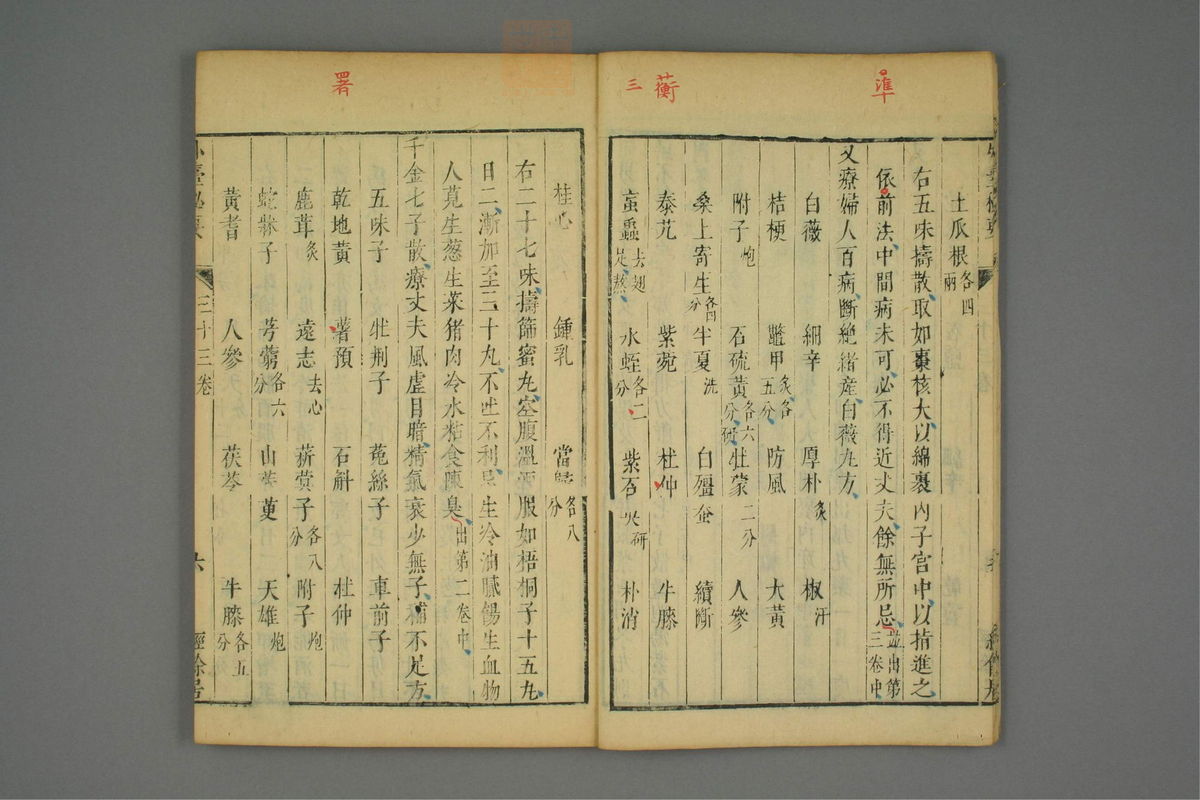 準
蘅
三
土瓜根各四兩
右五味擣散取如棗核大以綿裹內子宮中以指進之
依前法中間病未可必不得近丈夫餘無所忌並出第三卷中
又療婦人百病斷絶緒産白薇丸方
白薇 細辛 厚朴炙 椒汗
桔梗 鼈甲炙各五分 防風 大黃
附子炮 石硫黃各六分研 牡蒙二分 人參
桑上寄生各四分 半夏洗 白殭蚕 續斷
秦艽 紫菀 杜仲 牛膝
虻蟲去翅足熬 水蛭各二分 紫石英研 朴消
署
桂心 鍾乳 當歸各八分
右二十七味擣篩蜜丸空腹溫酒服如梧桐子十五丸
日二漸加至三十丸不吐不利忌生冷油膩餳生血物
人莧生葱生菜猪肉冷水粘食陳臭出第二卷中
千金七子散療丈夫風虛目暗精氣衰少無子補不足方
五味子 牡荊子 菟絲子 車前子
乾地黃 薯預 石斛 杜仲
鹿茸炙 遠志去心 菥蓂子各八分 附子炮
蛇牀子 芎藭各六分 山茱萸 天雄炮
黃耆 人參 茯苓 牛膝各五分
三十三卷
六
經餘居